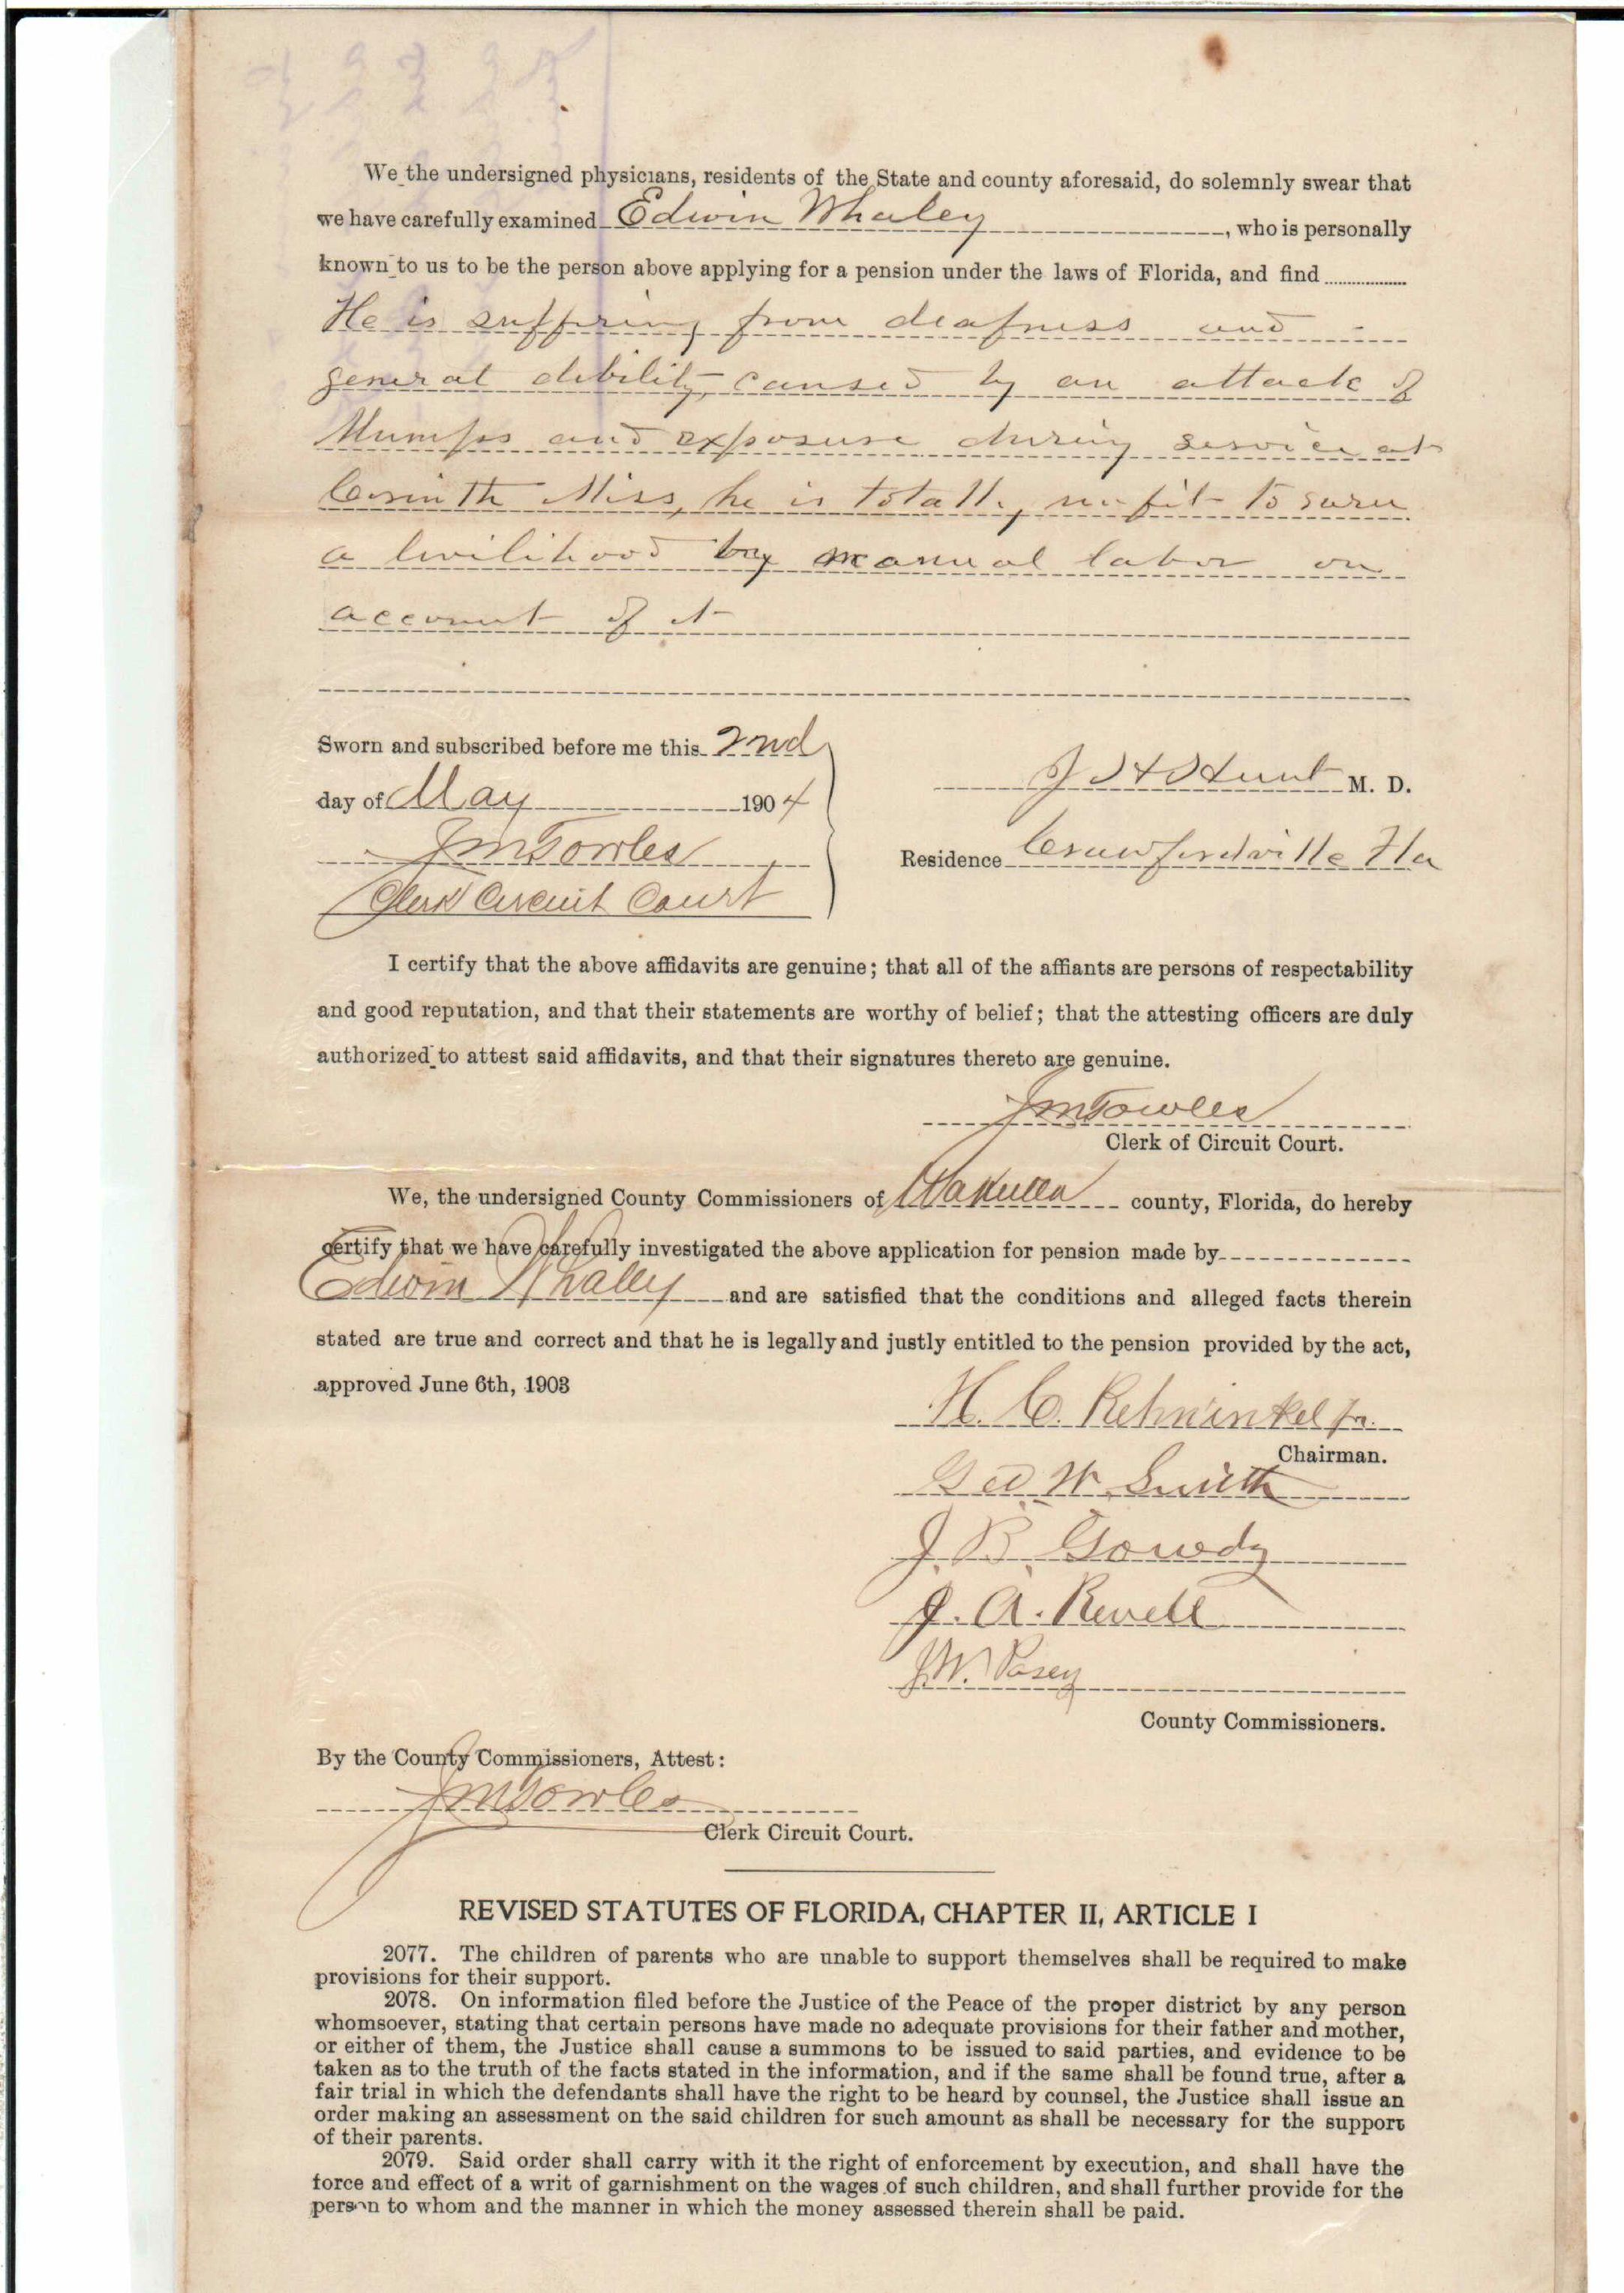 We the undersigned physicians, residents of the State and county aforesaid, do solemnly swear that
we have carefully examined Edwin Whaley, who is personally
known to us to be the person above applying for a pension under the laws of Florida, and find
He is suffering from deafness and
general debility caused by an attack of
Mumps and exposure during service at
Corinth Miss, he is totally unfit to earn
a livilihood by manual labor on
account of it
Sworn and subscribed before me this 2nd
day of May 1904
J H D Hunt M. D.
JM Towles
Residence Crawfordville Fla
Clerk Circuit Court
I certify that the above affidavits are genuine; that all of the affiants are persons of respectability
and good reputation, and that their statements are worthy of belief; that the attesting officers are duly
authorized to attest said affidavits, and that their signatures thereto are genuine.
JM Towles
Clerk of Circuit Court.
We, the undersigned County Commissioners of Wakulla county, Florida, do hereby
certify that we have carefully investigated the above application for pension made by
Edwin Whaley and are satisfied that the conditions and alleged facts therein
stated are true and correct and that he is legally and justly entitled to the pension provided by the act,
approved June 6th, 1903
H. C. Rehwinkel Jr.
Chairman.
Geo. W. Smith
J. B. Gowdy
J. A. Revell
J.W. Posey
County Commissioners.
By the County Commissioners, Attest:
JM Towles
Clerk Circuit Court.
REVISED STATUTES OF FLORIDA, CHAPTER II, ARTICLE I
2077. The children of parents who are unable to support themselves shall be required to make
provisions for their support.
2078. On information filed before the Justice of the Peace of the proper district by any person
whomsoever, stating that certain persons have made no adequate provisions for their father and mother,
or either of them, the Justice shall cause a summons to be issued to said parties, and evidence to be
taken as to the truth of the facts stated in the information, and if the same shall be found true, after a
fair trial in which the defendants shall have the right to be heard by counsel, the Justice shall issue an
order making an assessment on the said children for such amount as shall be necessary for the support
of their parents.
2079. Said order shall carry with it the right of enforcement by execution, and shall have the
force and effect of a writ of garnishment on the wages of such children, and shall further provide for the
person to whom and the manner in which the money assessed therein shall be paid.